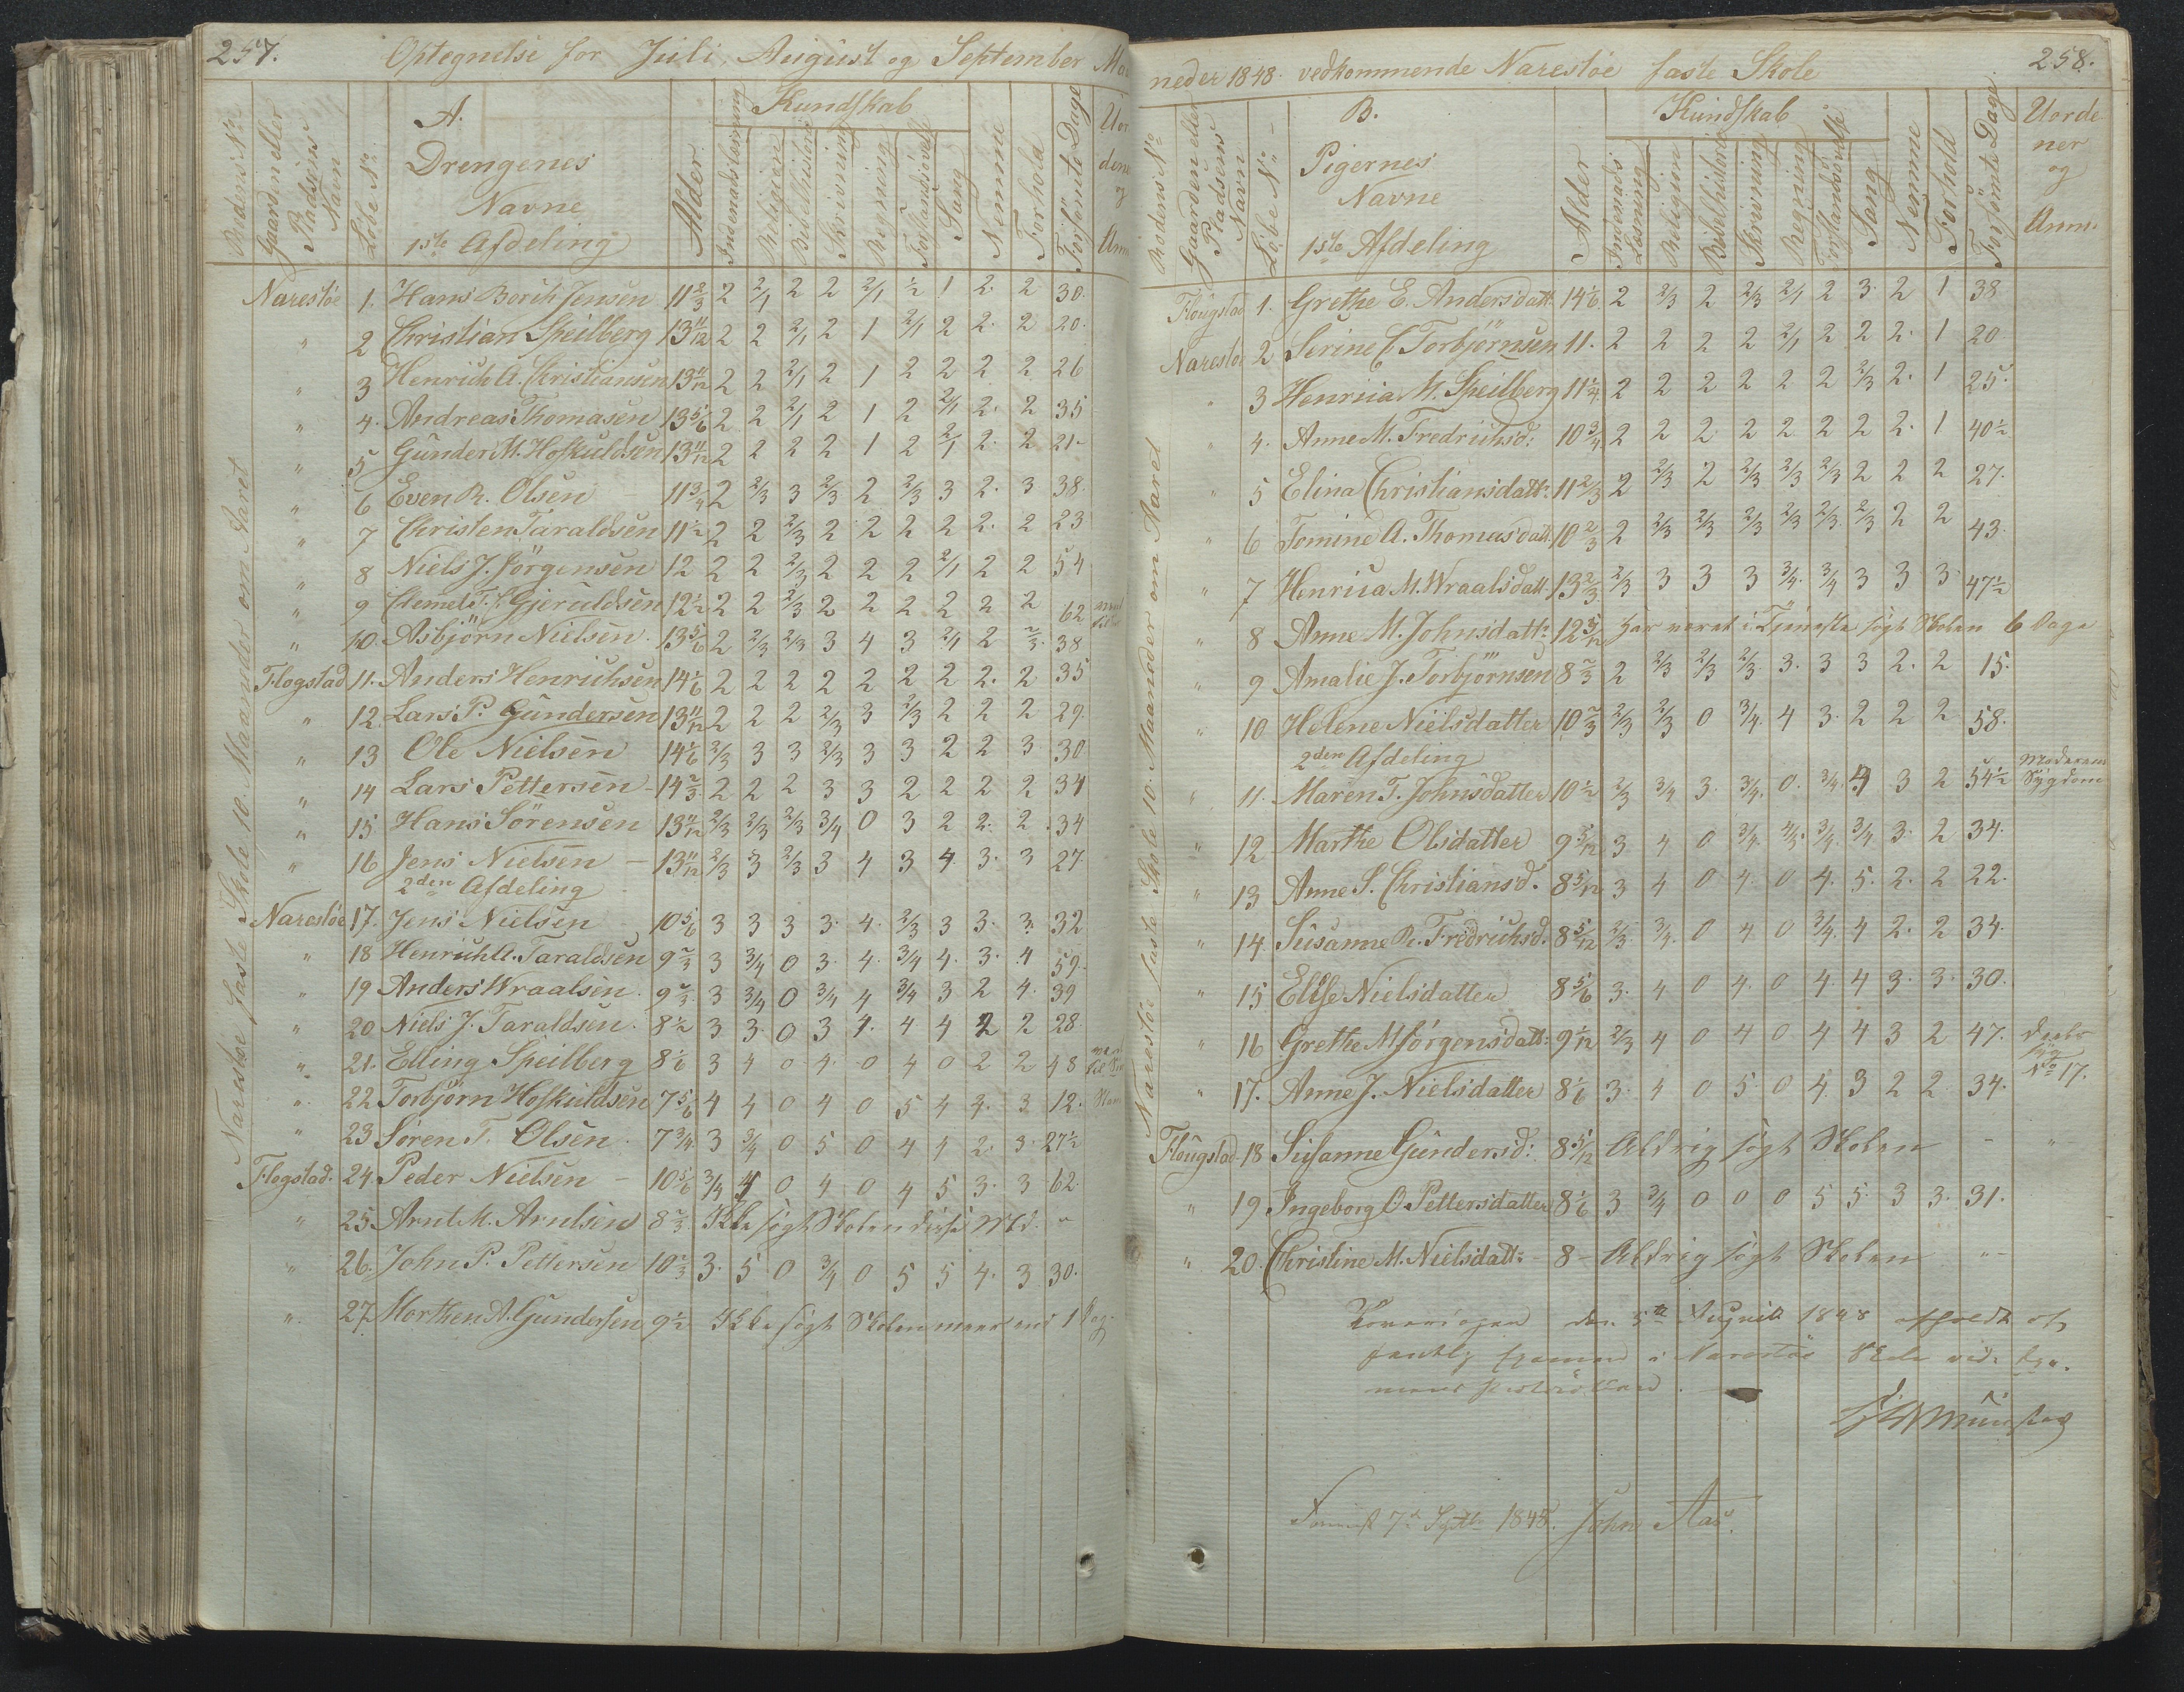 257.
Optegnelse for Juli, August og September Maa
Rodens No
Gaardens eller Pladsens Navn
Löbe No
A.
Drengenes
Navne
1ste Afdeling
Alder
Kundskab
Indenadslæsning
Religion
Bibelhistorie
Skrivning
Regning
Forstandsövelse
Sang
Nemme
Forhold
Forsömte Dage
Uor
dene
og
Anm
Narestöe faste Skole 10. Maaneder om Aaret
Narestöe 1. Hans Borth Jensen 11 2/3 2 2/1 2 2 2/1 1/2 1 2. 2 30.
" 2 Christian Speilberg 13 11/12 2 2 2/1 2 1 2/1 2 2. 2 20.
" 3 Henrich A. Christiansen 13 11/12 2 2 2/1 2 1 2 2 2 2 26
" 4. Andreas Thomasen 13 5/6 2 2 2/1 2 1 2 2/1 2. 2 35
" 5 Gunder M. Hofkuldsen 13 11/12 2 2 2 2 1 2 2/1 2. 2 21-
" 6 Even R. Olsen 11 3/4 2 2/3 3 2/3 2 2/3 3 2. 3 38.
" 7 Christen Taraldsen 11 1/2 2 2 2/3 2 2 2 2 2. 2 23
" 8 Niels J. Jörgensen 12 2 2 2/3 2 2 2 2/1 2 2 54
" 9 Clemet T. Gjeruldsen 12 1/2 2 2 2/3 2 2 2 2 2 2 62
" 10. Asbjörn Nielsen. 13 5/6 2 2/3 2/3 3 4 3 2/1 2 2/3. 38
Flogstad 11. Anders Henrichsen 14 1/6 2 2 2 2 2 2 2 2. 2 35
" 12. Lars P. Gundersen 13 11/12 2 2 2 2/3 3 2/3 2 2 2 29.
" 13 Ole Nielsen 14 1/6 2/3 3 3 2/3 3 3 2 2 3. 30
" 14 Lars Pettersen 14 2/3 2 2 2 3 3 2 2 2 2 34
" 15 Hans Sörensen 13 11/12 2/3 2/3 2/3 3/4 0 3 2 2. 2. 34
" 16 Jens Nielsen - 13 11/12 2/3 3 2/3 3 4 3 4. 3. 3 27.
2den Afdeling
Narestöe 17. Jens Nielsen 10 5/6 3 3 3 3. 4. 2/3 3 3. 3. 32
" 18 Henrich A. Taraldsen 9 2/3 3 3/4 0 3. 4. 3/4 4. 3. 4 59.
" 19 Anders Wraalsen. 9 2/3. 3 3/4 0 3/4 4 3/4 3 2 4. 39
" 20 Niels J. Taraldsen. 8 1/2 3 3. 0 3 4. 4 4 2 2 28.
" 21. Elling Speilberg 8 1/6 3 4 0 4. 0 4 0 2 2 48
" 22 Torbjörn Hofkuldsen 7 5/6 4 4 0 4 0 5 4 4. 3. 12.
" 23 Sören T. Olsen. 7 3/4 3 3/4 0 5 0 4 4 2. 3. 27 1/2
Flogstad. 24. Peder Nielsen - 10 5/6 3/4 4 0 4 0 4 5 3. 3 62.
" 25. Arnt M. Arntsen 8 2/3. Ikke sögt Skolen disse Md. "
" 26. John P. Pettersen 10 2/3 3. 5 0 3/4 0 5 5 4. 3 30.
" 27. Morthen A. Gundersen 9 1/2 Ikke sögt Skolen meer end 1 Dag.
258.
neder 1848. vedkommende Narestöe faste Skole
Rodens No
Gaardens eller Pladsens Navn
Löbe No
B.
Pigernes
Navne
1ste Afdeling
Alder
Kundskab
Indenads Læsning
Religion
Bibelhistorie
Skrivning
Regning
Forstandsövelse
Sang
Nemme
Forhold
Forsömte Dage
Uorde
ner
og
Anm.
Narestöe faste Skole 10. Maaneder om Aaret
Flougstad 1. Grethe E. Andersdatt. 14 1/6. 2 2/3 2 2/3 2/1 2 3. 2 1 38
Narestöe 2 Serine C Torbjörnsen 11. 2 2 2 2 2/1 2 2 2. 1 20
" 3 Henricia M. Speilberg 11 1/4 2 2 2 2 2 2 2/3 2. 1 25.
" 4. Anne M. Fredrichsd: 10 3/4 2 2 2 2 2 2 2 2. 1 40 1/2
" 5 Elina Christiansdattr. 11 2/3 2 2/3 2 2/3 2/3 2/3 2 2 2 27.
" 6 Tomine A. Thomasdatt. 10 2/3 2 2/3 2/3 2/3 2/3 2/3. 2/3 2 2 43.
" 7 Henricia M. Wraalsdatt. 13 2/3 2/3 3 3 3 3/4. 3/4 3 3 3 47 1/2
" 8 Anne M. Johnsdattr. 12 5/12 har været i Tjeneste sögt Skolen 6 Dage
" 9 Amalie J. Torbjörnsen 8 2/3 2 2/3 2/3 2/3. 3. 3 3 2. 2 15.
" 10 Helene Nielsdatter 10 2/3 2/3 2/3 0 3/4. 4 3. 2 2 2 58.
2den Afdeling
" 11. Maren T. Johnsdatter 10 1/2 2/3 3/4 3. 3/4. 0. 3/4. 4 3 2 54 1/2 Moderens Sygdom
" 12 Marthe Olsdatter 9 5/12 3 4 0 3/4. 4/3. 3/4. 3/4 3. 2 34.
" 13 Anne S. Christiansd. 8 5/12 3 4 0 4. 0 4. 5. 2. 2 22.
" 14. Susanne R. Fredrichsd. 8 5/12 2/3. 3/4. 0 4 0 3/4. 4 2. 2 34.
" 15 Elise Nielsdatter 8 5/6 3. 4 0 4. 0 4. 4 3. 3. 30.
" 16 Grethe M Jörgensdatt: 9 1/12 2/3 4 0 4 0 4 4 3 2 47.
" 17. Anne J. Nielsdatter 8 1/6 3. 4 0 5 0 4. 3 2 2 34. No 17.
Flougstad 18 Susanne Gundersd: 8 5/12 Aldrig sögt Skolen - "
" 19 Ingeborg O. Pettersdatter 8 1/6 3 3/4 0 0 0 5 5. 3 3. 31.
" 20. Christine M. Nielsdatt: - 8 - Aldrig sögt Skolen "
den 5te August 1848 afholdt
Examen i Narestöe Skole
7de Septbr 1848. John Aas.